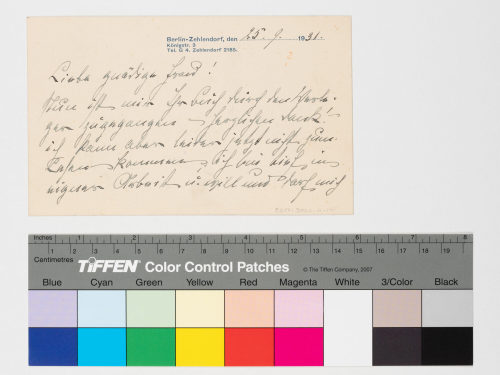 Berlin-Zehlendorf, den 25. 9. 1931.
Königstr. 3
Tel. G 4. Zehlendorf 2185.
Liebe gnädige Frau!
Nun ist mir Ihr Buch durch den Verla-
ger zugegangen – herzlichen Dank!
ich kann aber leider jetzt nicht zum
Lesen kommen, ich bin tief in
eigner Arbeit u. will und darf mich
Inches 1 2 3 4 5 6 7 8
Centimetres 1 2 3 4 5 6 7 8 9 10 11 12 13 14 15 16 17 18 19
TIFFEN Color Control Patches © The Tiffen Company, 2007
Blue Cyan Green Yellow Red Magenta White 3/Color Black